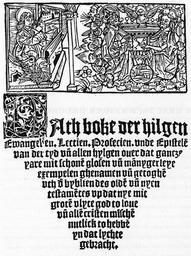 Dath boke der hilgen
Ewangelien. Lectien. Profecien. vnde Epistelē
van der tyd vn̄ allen hylgen ouer dat gantcz
yare mit schone glosen vn̄ mānygerleye
exempelen ghenamen vn̄ getoghē
vth d' byblien des oldē vn̄ nyen
testamētes vp dat nye mit
grotē vlyte god to loue
vn̄ allē cristen mīschē
nutlick to hebbē
yn dat lychte
gebracht.